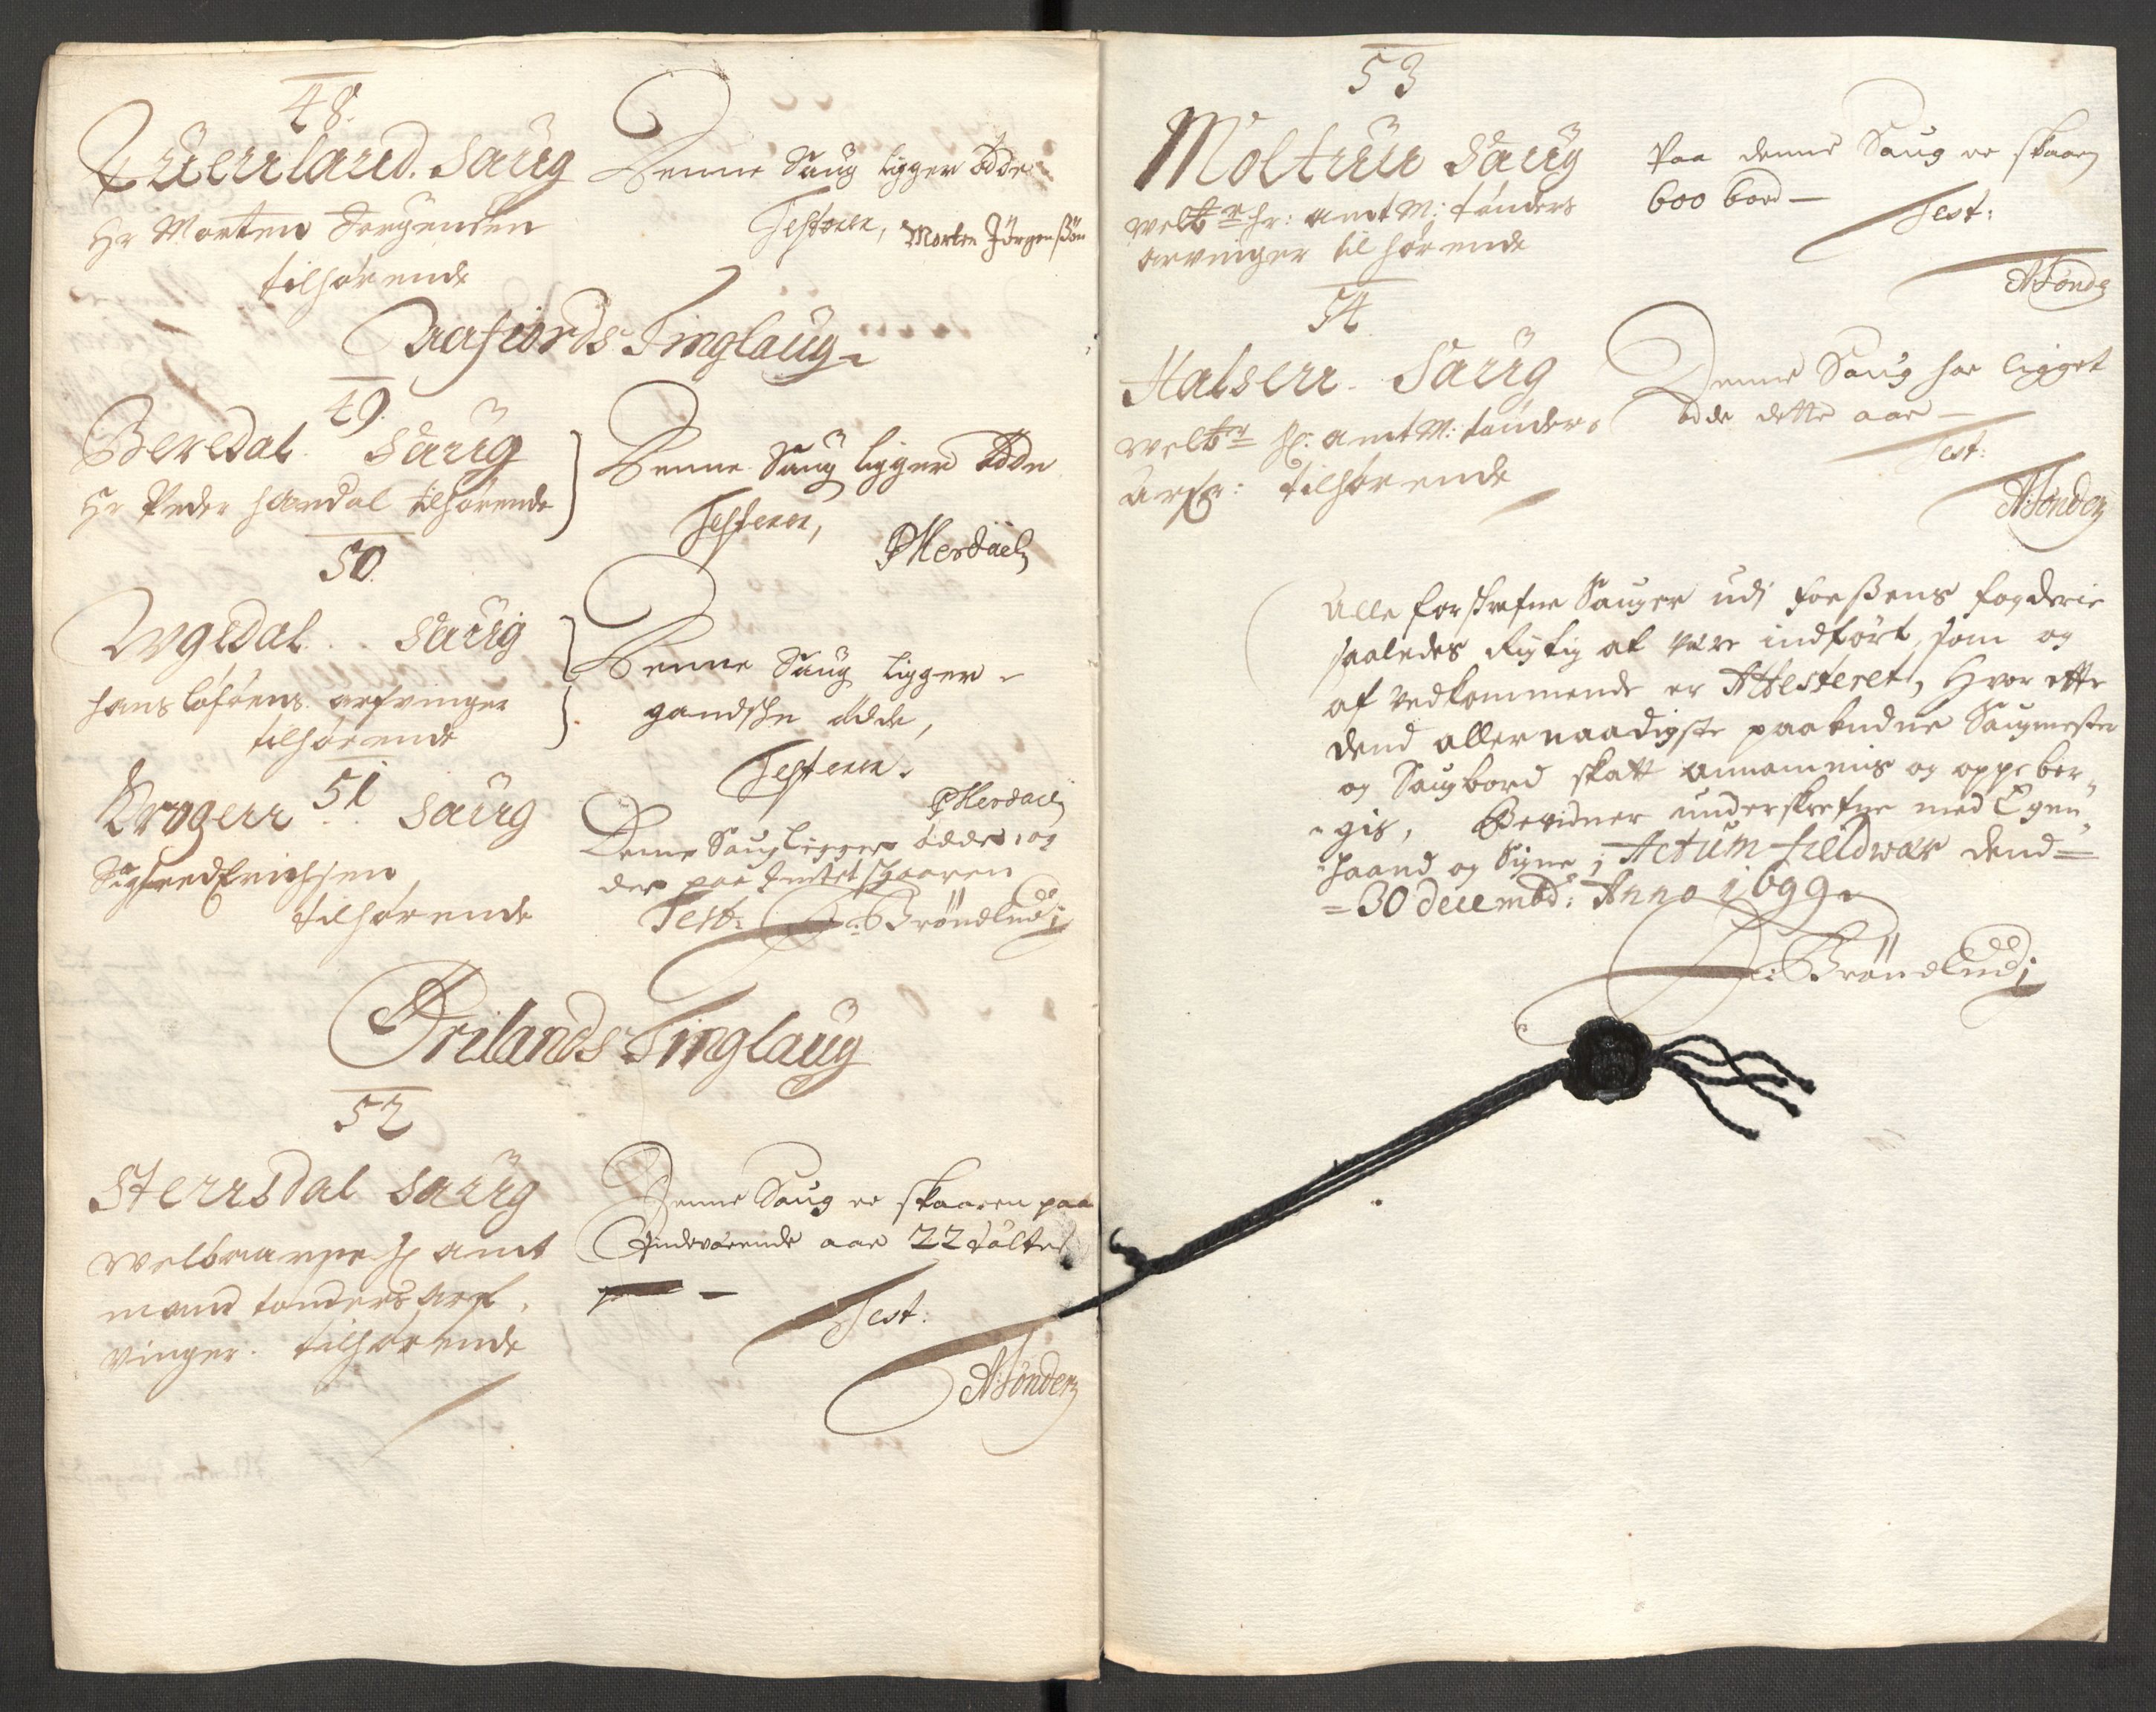 48.
Qverrland. Saug
Hr Morten Jørgensen
tilhørende
Denne Saug ligger øde
Testerer, Morten Jörgenssön
Aafiords Tinglaug
49.
Beredal Saug
Hr Peder Hærdal tilhørende
Denne Saug ligger Øde
Testerer,
PHerdael
50.
Nygedal Saug
Hans arfvinger
tilhørende
Denne Saug ligger
gandske Øde,
Testerer.
PHerdael
51
Krogerr Saug
Sigfred Erichsen
tilhørende
Denne Saug ligger øde, og
der paa Intet skaaren
Test: Bröndlund
Ørilands Tinglaug
52
Sterrsdal Saug
Welbaarne H amt
mand tonders arf
vinger. tilhørende
Denne Saug er skaaren paa
Indeværende aar 22 tölter
Test:
ATonder
53
Moltuu Saug
Welbr hr: amtM: tönders
arvinger tilhørende
Paa denne Saug er skaaren
600 bord
Test:
ATonder
54
Halserr Saug
Welbr H: amtM: tönders
Arf: tilhørende
Denne Saug har ligget
øde dette aar
Test:
ATonder
Alle forskrefne Sauger udj Foessens fogderie
saaledes Rigtig at være indført, som og
af Vedkommende er Attesteret, Hvor efter
dend allernaadigste paabudne Saugmester
og Saugbord skatt annammis og oppeber-
gis, Bevidner underskrefne med Egen
haand og Signe; Actum Field dend
30 decembr: Anno 1699
Bröndlund